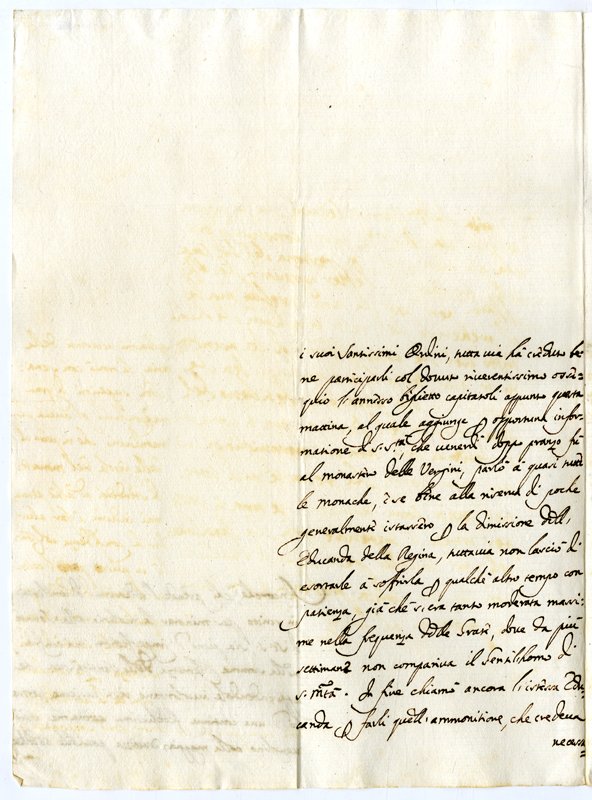 i suoi Santissimi Ordini, tuttavia hà creduto be
ne participarli col dovuto riverentissimo osse=
quio l'annesso biglietto capitatoli appunto questa
mattina, al quale aggiunge p opportuna infor=
matione di S. Stà, che venerdì doppo pranzo fù
al monastero delle Vergini, parlò à quasi tutte
le monache, e se bene alla riserva di poche
generalmente istassero p la dimissione dell'
Educanda della Regina, tuttavia non lasciò di
esortarle à soffrirla p qualche altro tempo con
patienza, già che si era tanto moderata massi=
me nella frequenza delle Grati, dove da più
settimane non compariva il Gentilhomo di
S. Mtà. In fine chiamò ancora l'istessa Edu=
canda p farli quell'ammonitione, che credeva
necess=